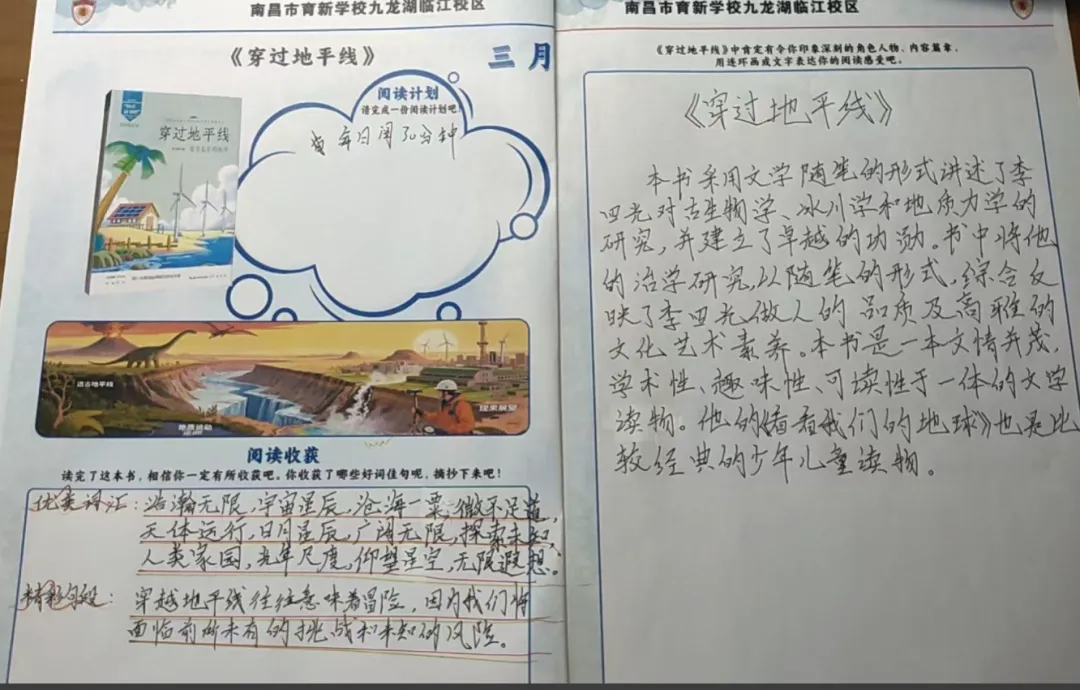 南昌市育新学校九龙湖临江校区
《穿过地平线》
三月
阅读计划
请完成一份阅读计划吧!
每日阅30分钟
穿过地平线
远古地平线
地质运动
阅读收获
读完了这本书，相信你一定有所收获吧。你收获了哪些好词佳句呢，摘抄下来吧！
优美词汇：浩瀚无限，宇宙星辰，沧海一粟，微不足道，
天体运行，日月星辰，广阔无限，探索未知，
人类家园，光年尺度，仰望星空，无限遐想。
精彩句段：穿越地平线往往意味着冒险，因为我们将
面临前所未有的挑战和未知的风险。
南昌市育新学校九龙湖临江校区
《穿过地平线》中肯定有令你印象深刻的角色人物、内容篇章，
用连环画或文字表达你的阅读感受吧。
《穿过地平线》
本书采用文学随笔的形式讲述了李
四光对古生物学、冰川学和地质力学的
研究，并建立了卓越的功勋。书中将他
的治学研究，以随笔的形式，综合反
映了李四光做人的品质及高雅的
文化艺术素养。本书是一本文情并茂，
学术性、趣味性、可读性于一体的文学
读物。他的《看看我们的地球》也是比
较经典的少年儿童读物。